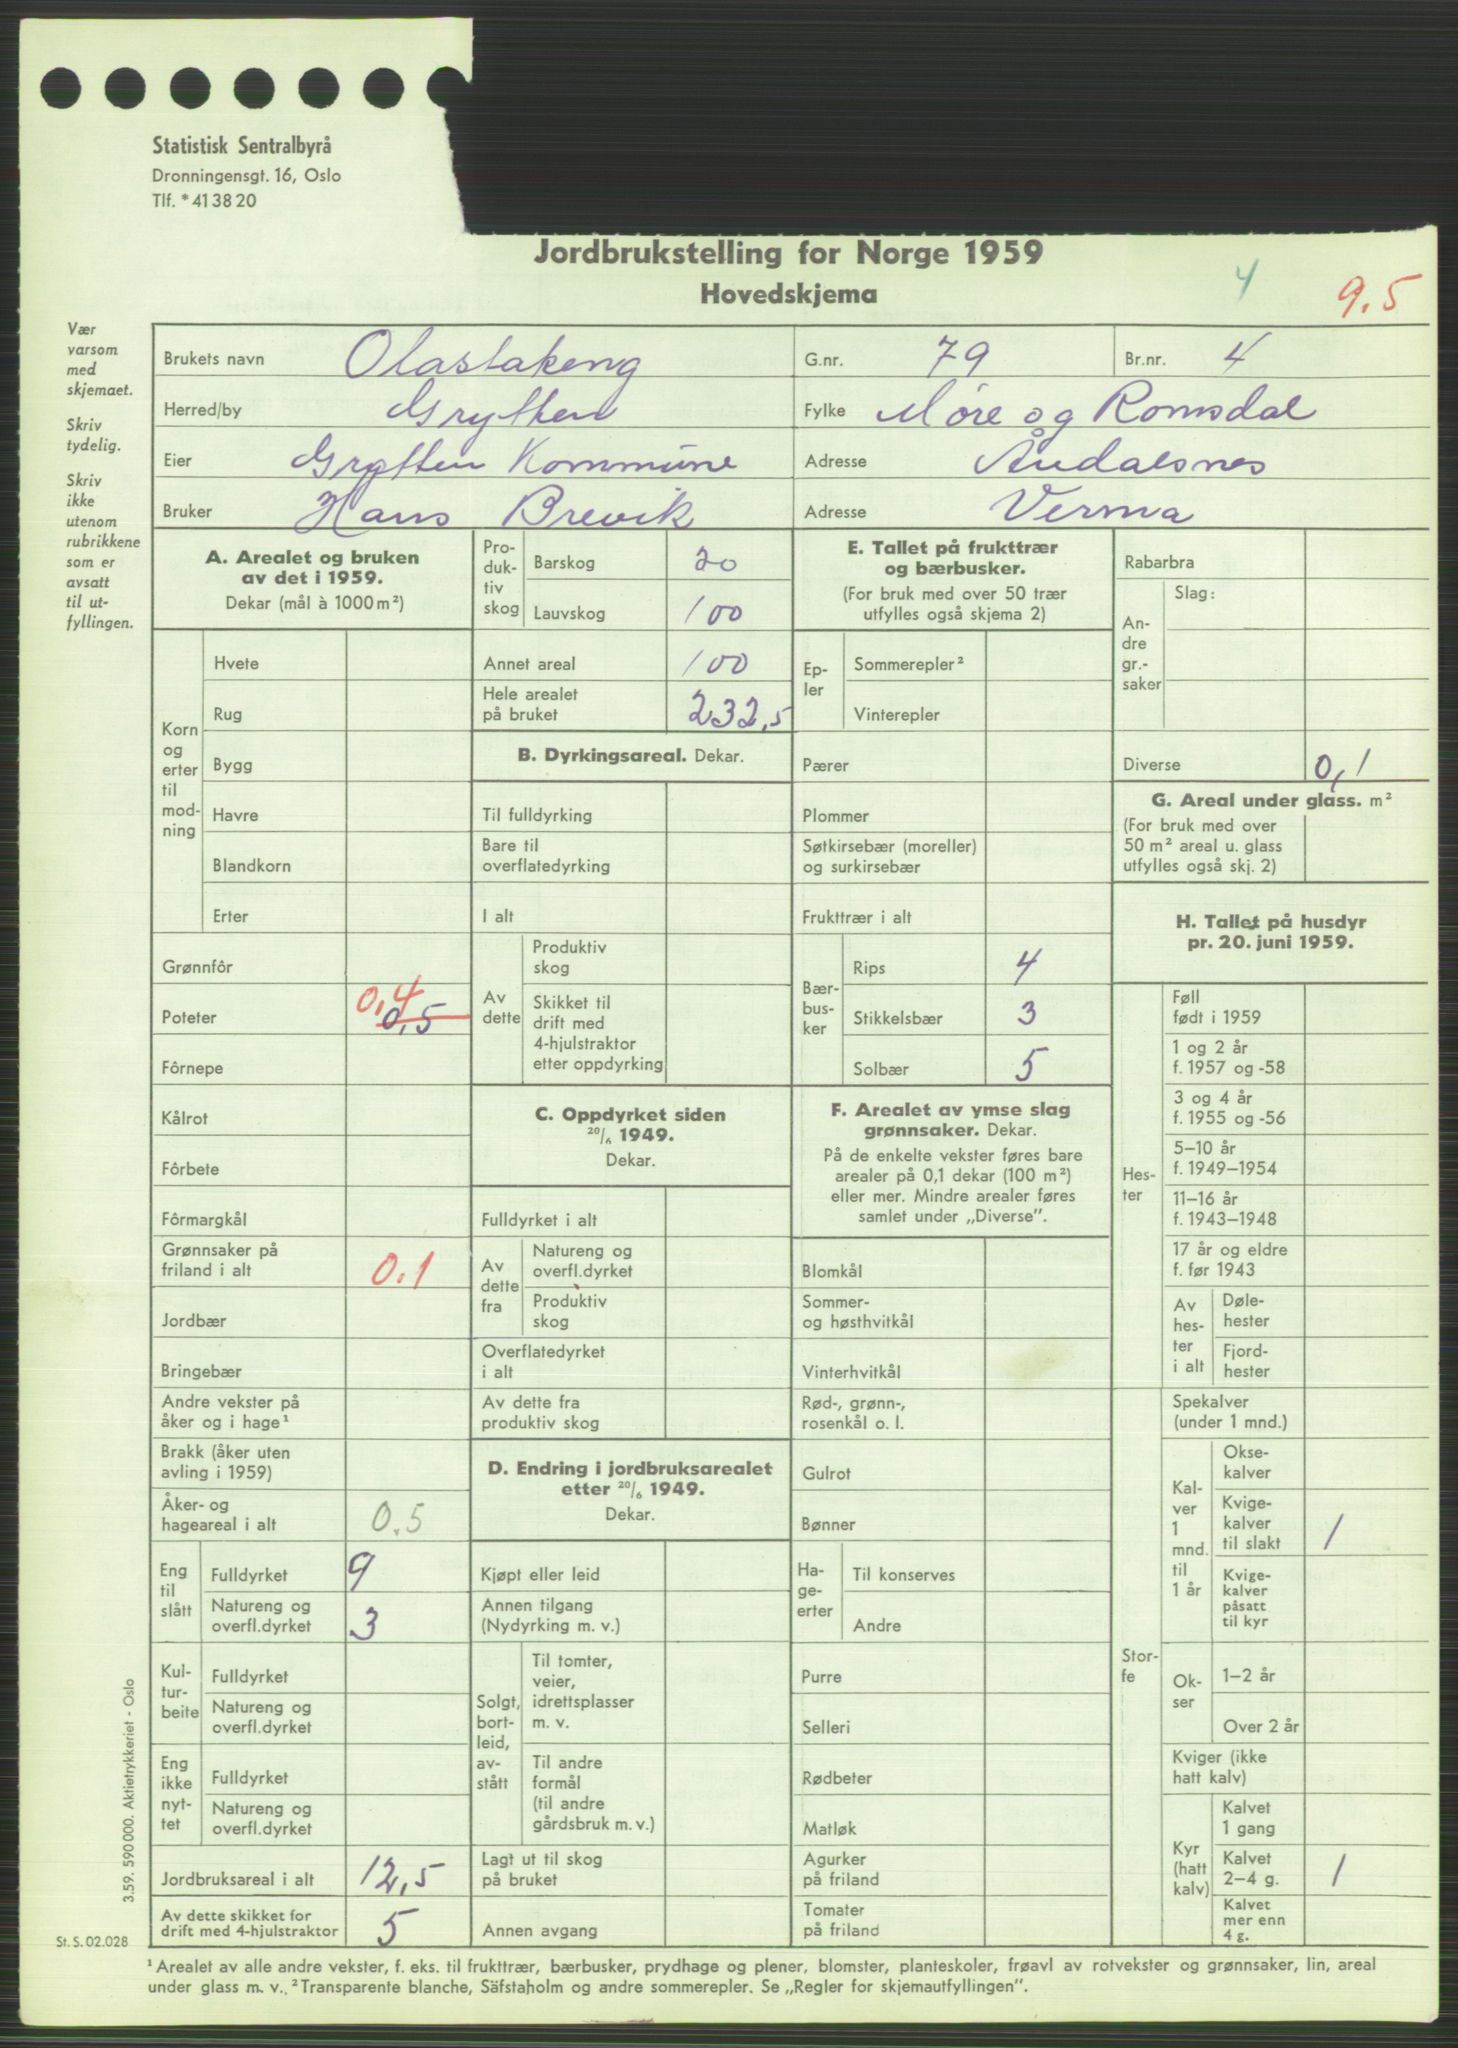 Statistisk Sentralbyrå
Dronningensgt. 16, Oslo
Tlf. * 41 38 20
Jordbrukstelling for Norge 1959
Hovedskjema
4
9.5
Vær
varsom
med
skjemaet.
Skriv
tydelig.
Skriv
ikke
utenom
rubrikkene
som er
avsatt
til ut-
fyllingen.
Brukets navn Olastakeng G.nr. 79 Br.nr. 4
Herred/by Grytten Fylke Møre og Romsdal
Eier Grytten Kommune Adresse Åndalsnes
Bruker Hans Brevik Adresse Verma
A. Arealet og bruken
av det i 1959.
Dekar (mål à 1000 m²)
Korn
og
erter
til
mod-
ning
Hvete
Rug
Bygg
Havre
Blandkorn
Erter
Grønnfôr
Poteter 0,4 0,5
Fôrnepe
Kålrot
Fôrbete
Fôrmargkål
Grønnsaker på
friland i alt 0.1
Jordbær
Bringebær
Andre vekster på
åker og i hage¹
Brakk (åker uten
avling i 1959)
Åker- og
hageareal i alt 0.5
Eng
til
slått
Fulldyrket 9
Natureng og
overfl.dyrket 3
Kul-
tur-
beite
Fulldyrket
Natureng og
overfl.dyrket
Eng
ikke
nyt-
tet
Fulldyrket
Natureng og
overfl.dyrket
Jordbruksareal i alt 12,5
Av dette skikket for
drift med 4-hjulstraktor 5
Pro-
duk-
tiv
skog
Barskog 20
Lauvskog 100
Annet areal 100
Hele arealet
på bruket 232,5
B. Dyrkingsareal. Dekar.
Til fulldyrking
Bare til
overflatedyrking
I alt
Av
dette
Produktiv
skog
Skikket til
drift med
4-hjulstraktor
etter oppdyrking
C. Oppdyrket siden
20/6 1949.
Dekar.
Fulldyrket i alt
Av
dette
fra
Natureng og
overfl.dyrket
Produktiv
skog
Overflatedyrket
i alt
Av dette fra
produktiv skog
D. Endring i jordbruksarealet
etter 20/6 1949.
Dekar.
Kjøpt eller leid
Annen tilgang
(Nydyrking m. v.)
Solgt,
bort-
leid,
av-
stått
Til tomter,
veier,
idrettsplasser
m. v.
Til andre
formål
(til andre
gårdsbruk m. v.)
Lagt ut til skog
på bruket
Annen avgang
E. Tallet på frukttrær
og bærbusker.
(For bruk med over 50 trær
utfylles også skjema 2)
Ep-
ler
Sommerepler²
Vinterepler
Pærer
Plommer
Søtkirsebær (moreller)
og surkirsebær
Frukttrær i alt
Bær-
bus-
ker
Rips 4
Stikkelsbær 3
Solbær 5
F. Arealet av ymse slag
grønnsaker. Dekar.
På de enkelte vekster føres bare
arealer på 0,1 dekar (100 m²)
eller mer. Mindre arealer føres
samlet under „Diverse”.
Blomkål
Sommer-
og høsthvitkål
Vinterhvitkål
Rød-, grønn-,
rosenkål o. l.
Gulrot
Bønner
Ha-
ge-
erter
Til konserves
Andre
Purre
Selleri
Rødbeter
Matløk
Agurker
på friland
Tomater
på friland
Rabarbra
An-
dre
gr.-
saker
Slag:
Diverse 0,1
G. Areal under glass. m²
(For bruk med over
50 m² areal u. glass
utfylles også skj. 2)
H. Tallet på husdyr
pr. 20. juni 1959.
Hes-
ter
Føll
født i 1959
1 og 2 år
f. 1957 og -58
3 og 4 år
f. 1955 og -56
5–10 år
f. 1949–1954
11–16 år
f. 1943–1948
17 år og eldre
f. før 1943
Av
hes-
ter
i alt
Døle-
hester
Fjord-
hester
Stor-
fe
Spekalver
(under 1 mnd.)
Kal-
ver
1
mnd.
til
1 år
Okse-
kalver
Kvige-
kalver
til slakt 1
Kvige-
kalver
påsatt
til kyr
Ok-
ser
1–2 år
Over 2 år
Kviger (ikke
hatt kalv)
Kyr
(hatt
kalv)
Kalvet
1 gang
Kalvet
2–4 g. 1
Kalvet
mer enn
4 g.
3.59. 590 000. Aktietrykkeriet - Oslo
St. S. 02.028
¹ Arealet av alle andre vekster, f. eks. til frukttrær, bærbusker, prydhage og plener, blomster, planteskoler, frøavl av rotvekster og grønnsaker, lin, areal
under glass m. v. ² Transparente blanche, Säfstaholm og andre sommerepler. Se „Regler for skjemautfyllingen”.